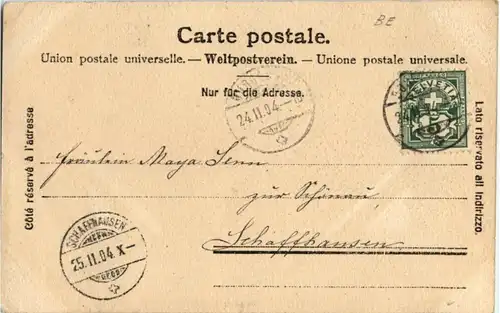 BE
Carte postale.
Union postale universelle. — Weltpostverein. — Unione postale universale.
Nur für die Adresse.
Côté réservé à l'adresse
Lato riservato all indirizzo.
HELVETIA
24.II.04.
Fräulein Maya Senn
zur Schönau,
Schaffhausen
SCHAFFHAUSEN
25.II.04.X—